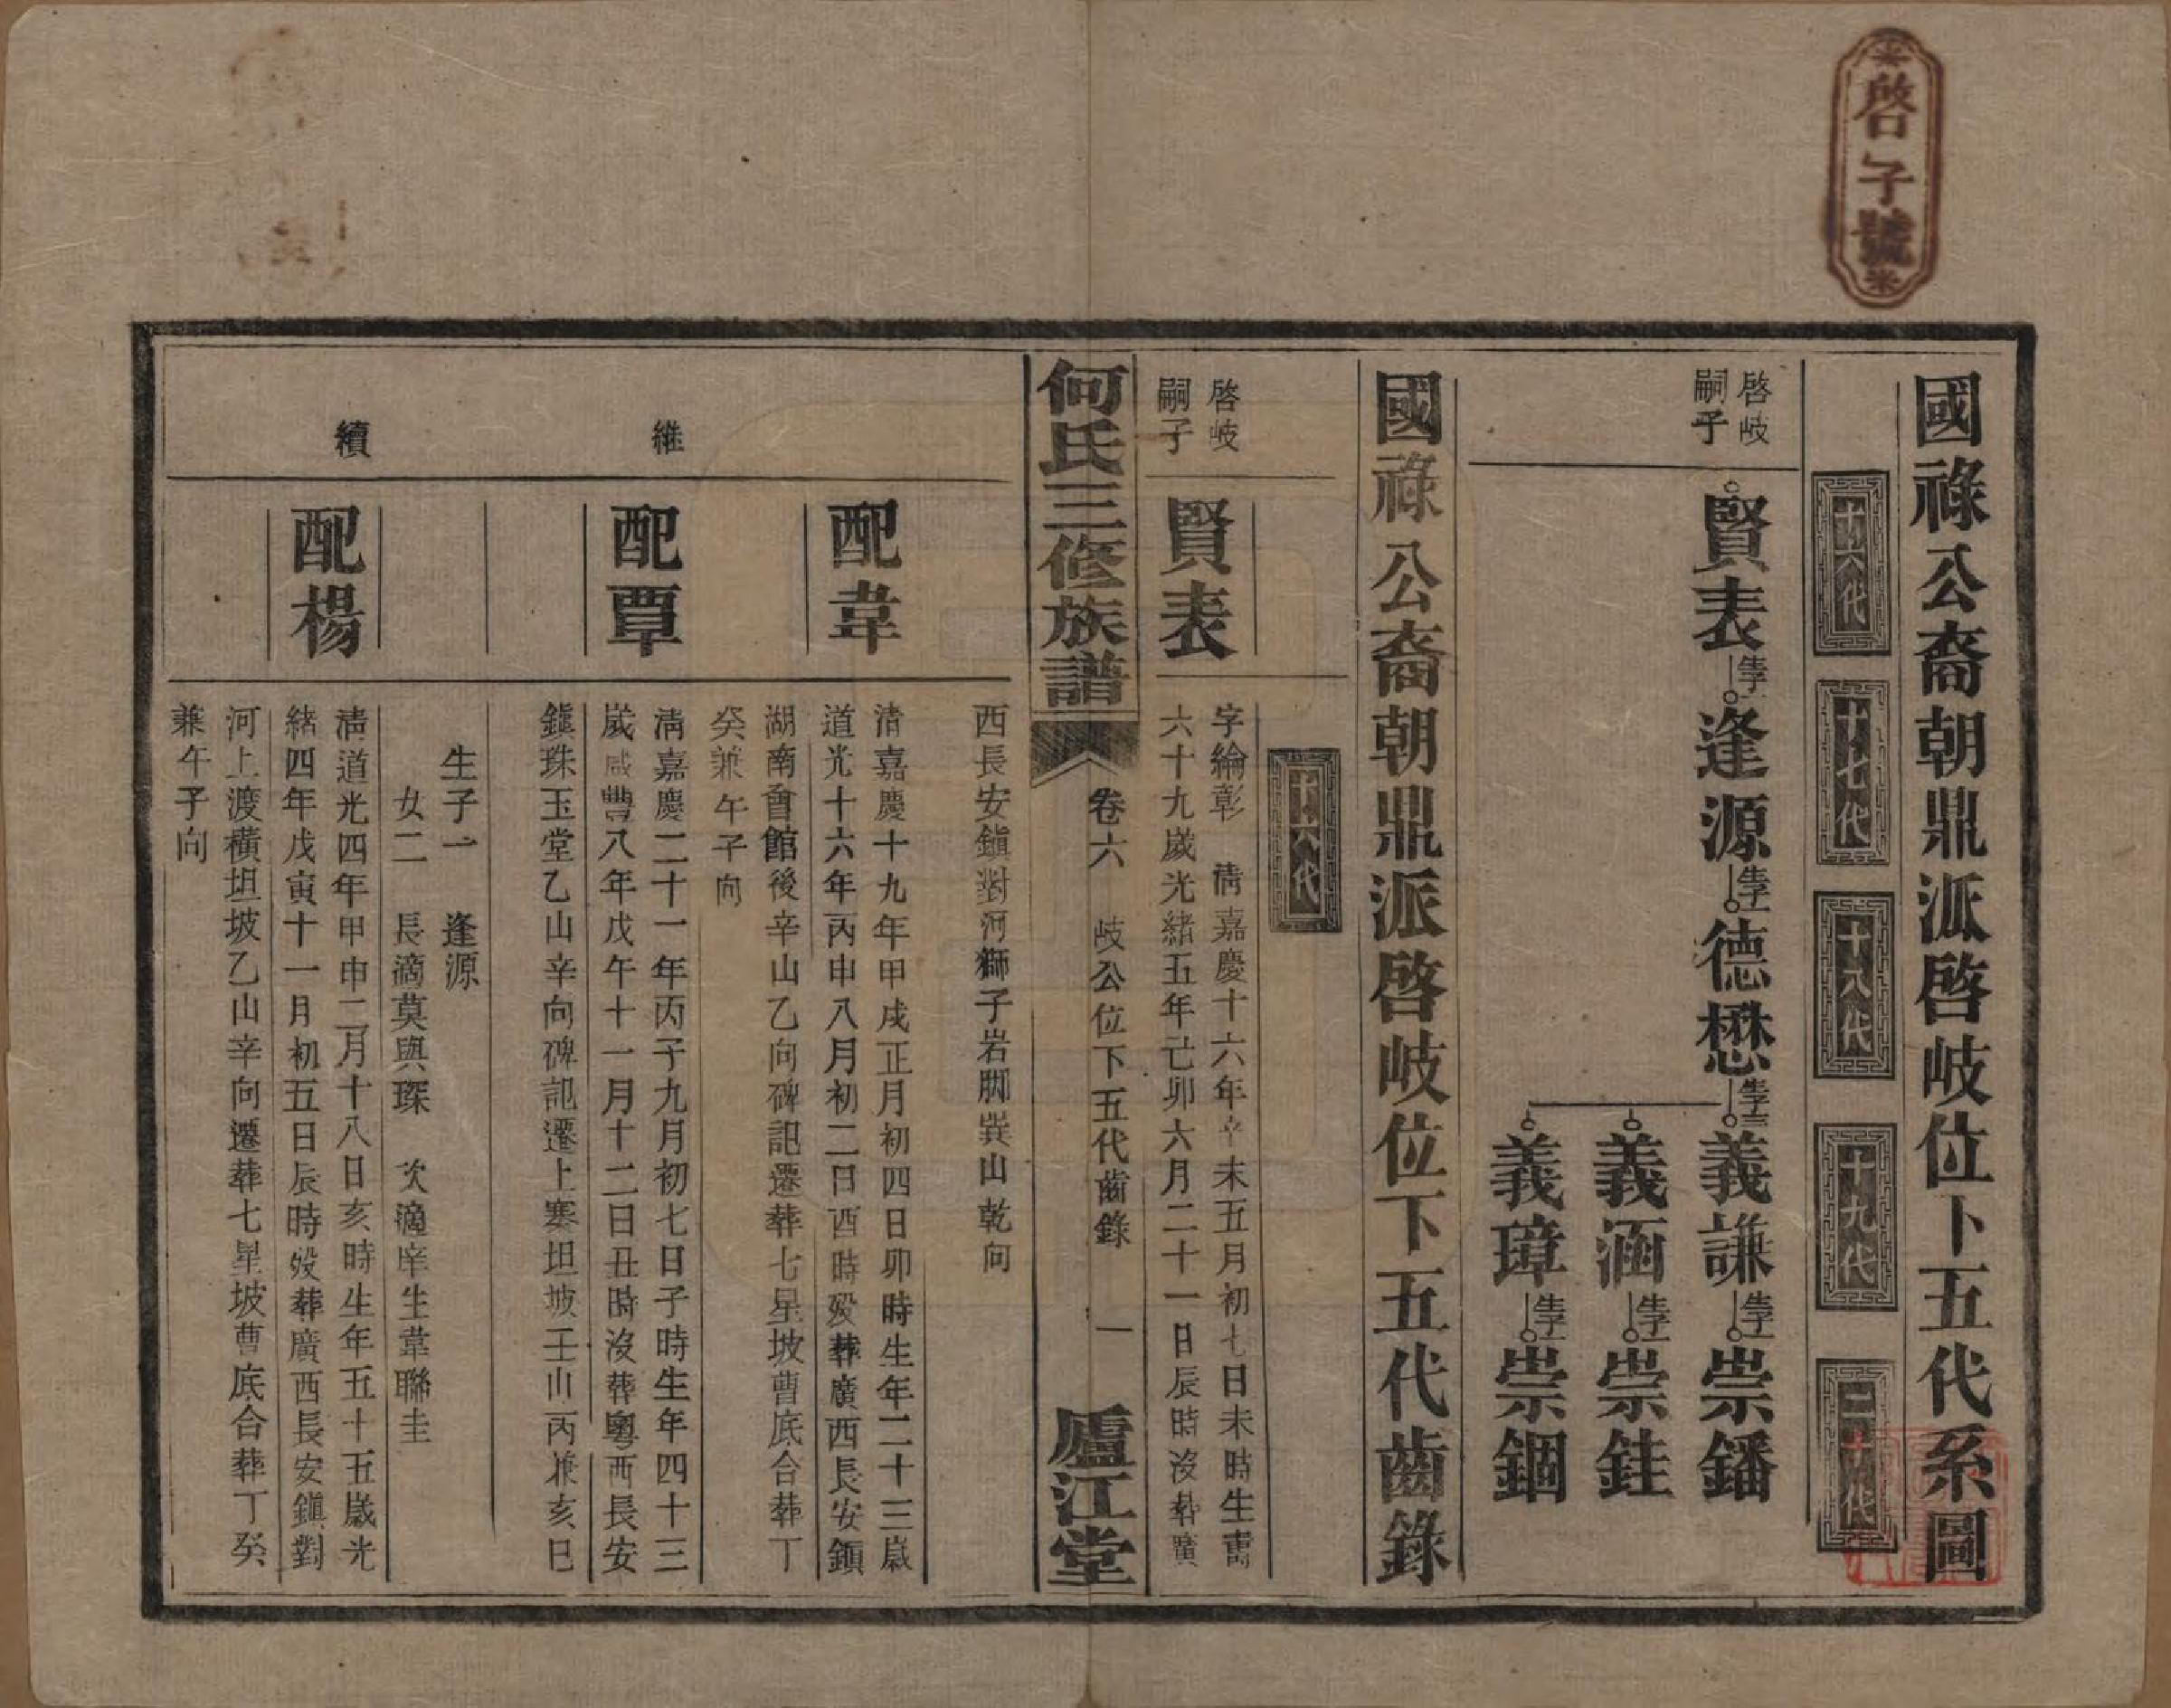 啓字號
國祿公裔朝鼎派啓岐位下五代系圖
十六代
十七代
十八代
十九代
二十代
啓岐
嗣子
賢表 生子一 逢源 生子一 德懋 生子三 義謙 生子一 崇鐇
義涵 生子一 崇銈
義璋 生子一 崇錮
國祿公裔朝鼎派啓岐位下五代齒錄
十六代
啓岐
嗣子
賢表
字綸彰 清嘉慶十六年辛未五月初七日未時生壽
六十九歲光緒五年己卯六月二十一日辰時沒葬廣
何氏三修族譜
卷六 岐公位下五代齒錄 一
廬江堂
西長安鎭對河獅子岩脚巽山乾向
配韋
清嘉慶十九年甲戌正月初四日卯時生年二十三歲
道光十六年丙申八月初二日酉時歿葬廣西長安鎭
湖南會館後辛山乙向碑記遷葬七星坡曹底合葬丁
癸兼午子向
継
配覃
淸嘉慶二十一年丙子九月初七日子時生年四十三
歲咸豐八年戊午十一月十二日丑時沒葬粵西長安
鎭珠玉堂乙山辛向碑記遷上寨坦坡壬山丙兼亥巳
生子一 逢源
女二 長適莫與琛 次適庠生韋聯圭
續
配楊
淸道光四年甲申二月十八日亥時生年五十五歲光
緒四年戊寅十一月初五日辰時歿葬廣西長安鎭對
河上渡橫坦坡乙山辛向遷葬七星坡曹底合葬丁癸
兼午子向